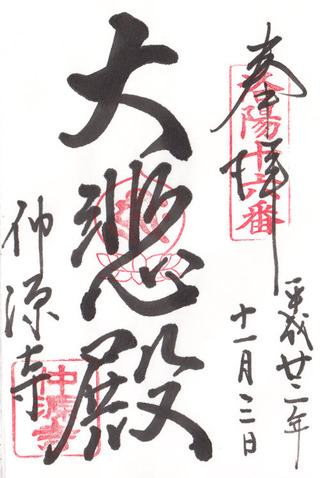 奉拝
洛陽十六番
平成廿二年
十一月三日
大悲殿
仲源寺
仲源寺